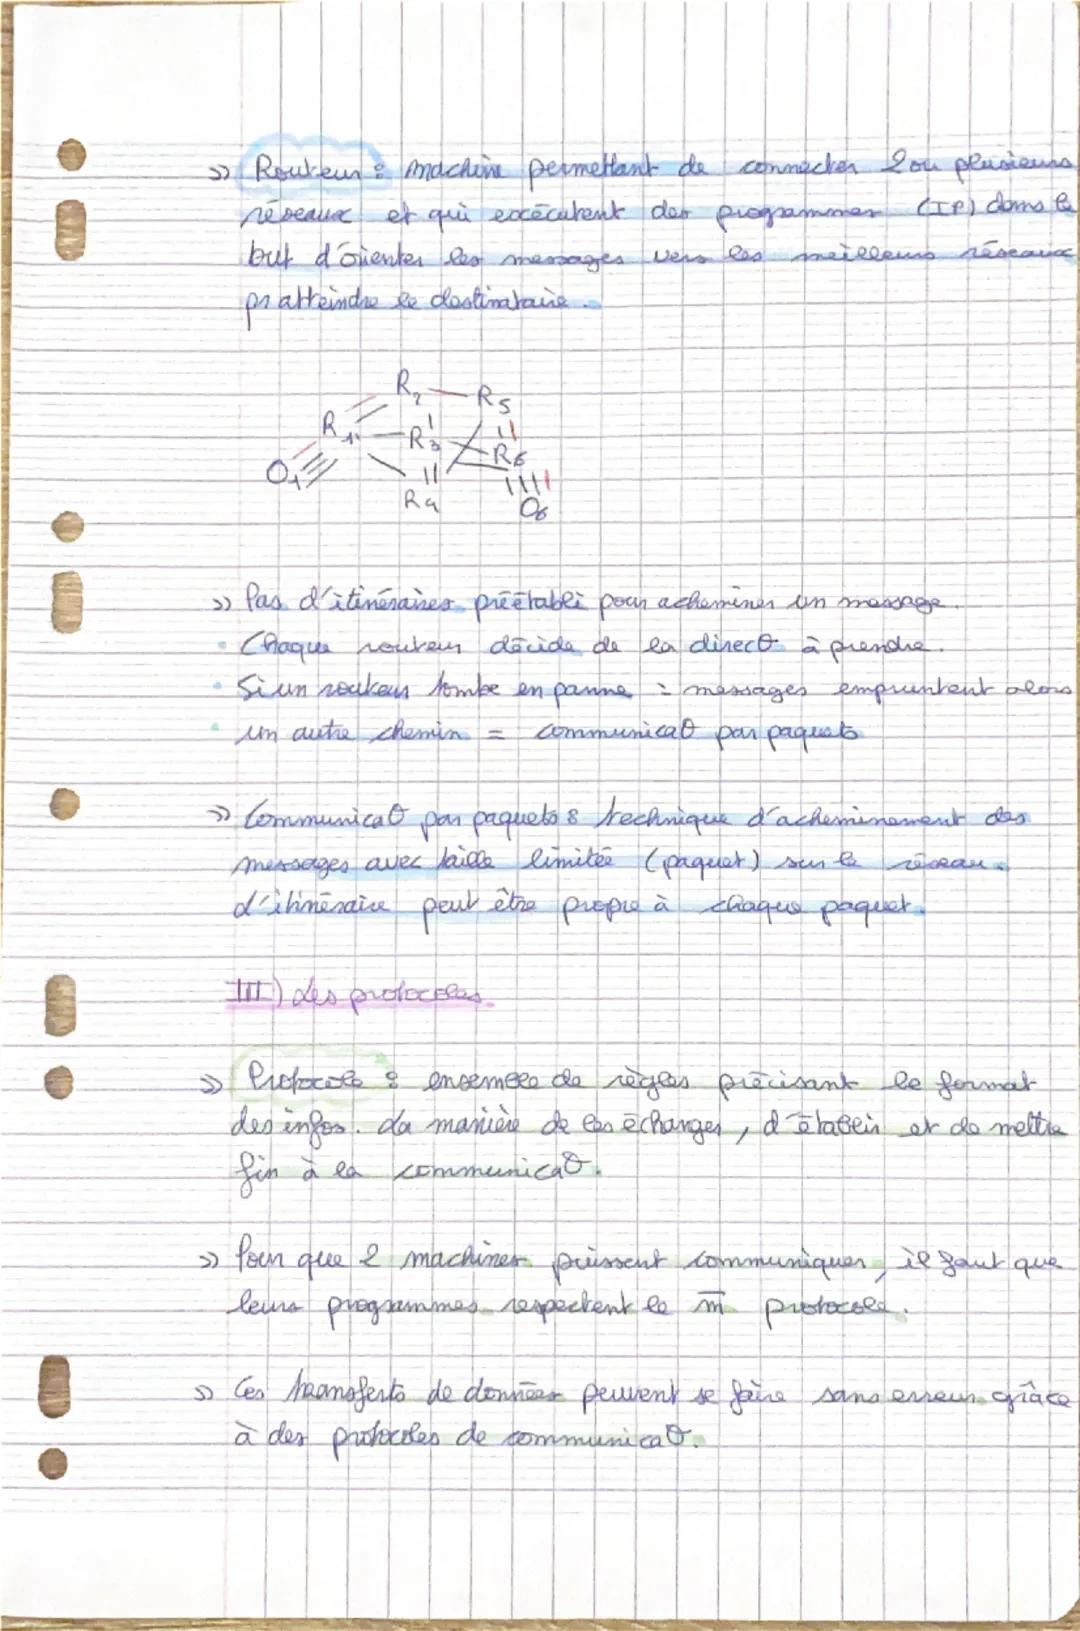 » Routeur : machine permettant de connecter 2 ou plusieurs
réseaux et qui exécutent des programmes (IP) dans le
but d'orienter les messages vers les meilleurs réseaux
pr atteindre le destinataire.
R2 R5
R1 R3 R6
O1 R4 O6
» Pas d'itinéraires préétabli pour acheminer un message.
• Chaque routeur décide de la direct° à prendre.
• Si un routeur tombe en panne = messages empruntent alors
• un autre chemin = communicat° par paquets
» Communicat° par paquets : technique d'acheminement des
messages avec taille limitée (paquet) sur le réseau.
L'itinéraire peut être propre à chaque paquet.
III) Les protocoles.
» Protocole : ensemble de règles précisant le format
des infos. La manière de les échanges, d'établir et de mettre
fin à la communicat°.
» Pour que 2 machines puissent communiquer, il faut que
leurs programmes respectent le m̄ protocole.
» Ces transferts de données peuvent se faire sans erreur grâce
à des protocoles de communicat°.